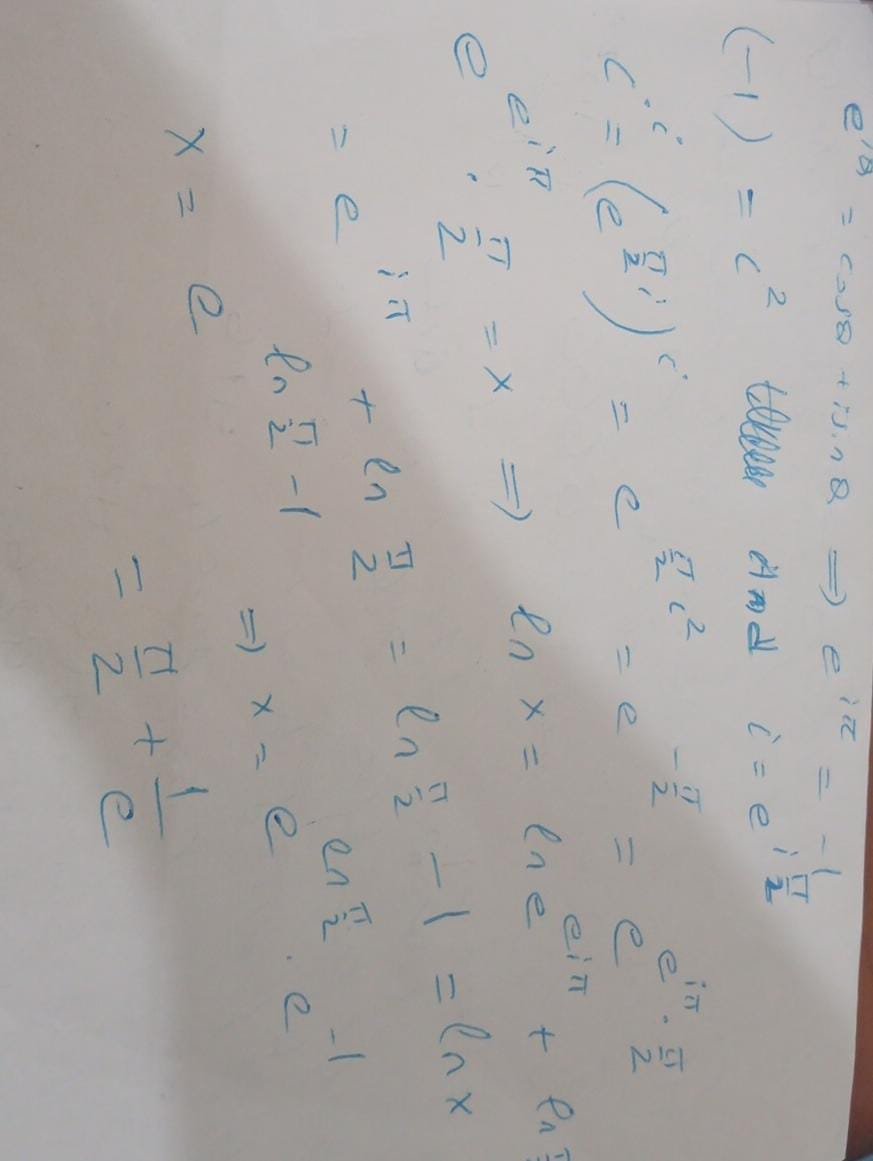 e^{iθ} = cosθ + i sinθ ⇒ e^{iπ} = -1
(-1) = i² And i = e^{i π/2}
i^i = (e^{π/2 i})^i = e^{π/2 i²} = e^{-π/2} = e^{e^{iπ} · π/2}
e^{e^{iπ} · π/2} = x ⇒ ln x = ln e^{e^{iπ}} + ln π/2
= e^{iπ} + ln π/2 = ln π/2 - 1 = ln x
x = e^{ln π/2 - 1} ⇒ x = e^{ln π/2} · e^{-1}
= π/2 + 1/e